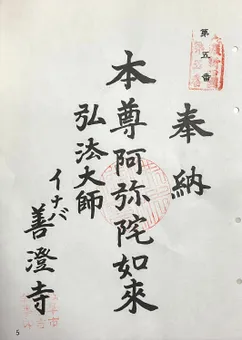 第五番
奉納
本尊阿弥陀如来
弘法大師
イナバ
善澄寺
5